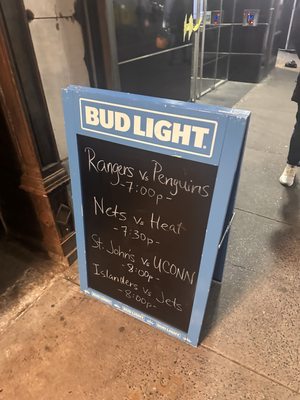 BUD LIGHT
Rangers vs Penguins
-7:00p-
Nets vs Heat
-7:30p-
St. John's vs UCONN
-8:00p-
Islanders vs Jets
-8:00p-